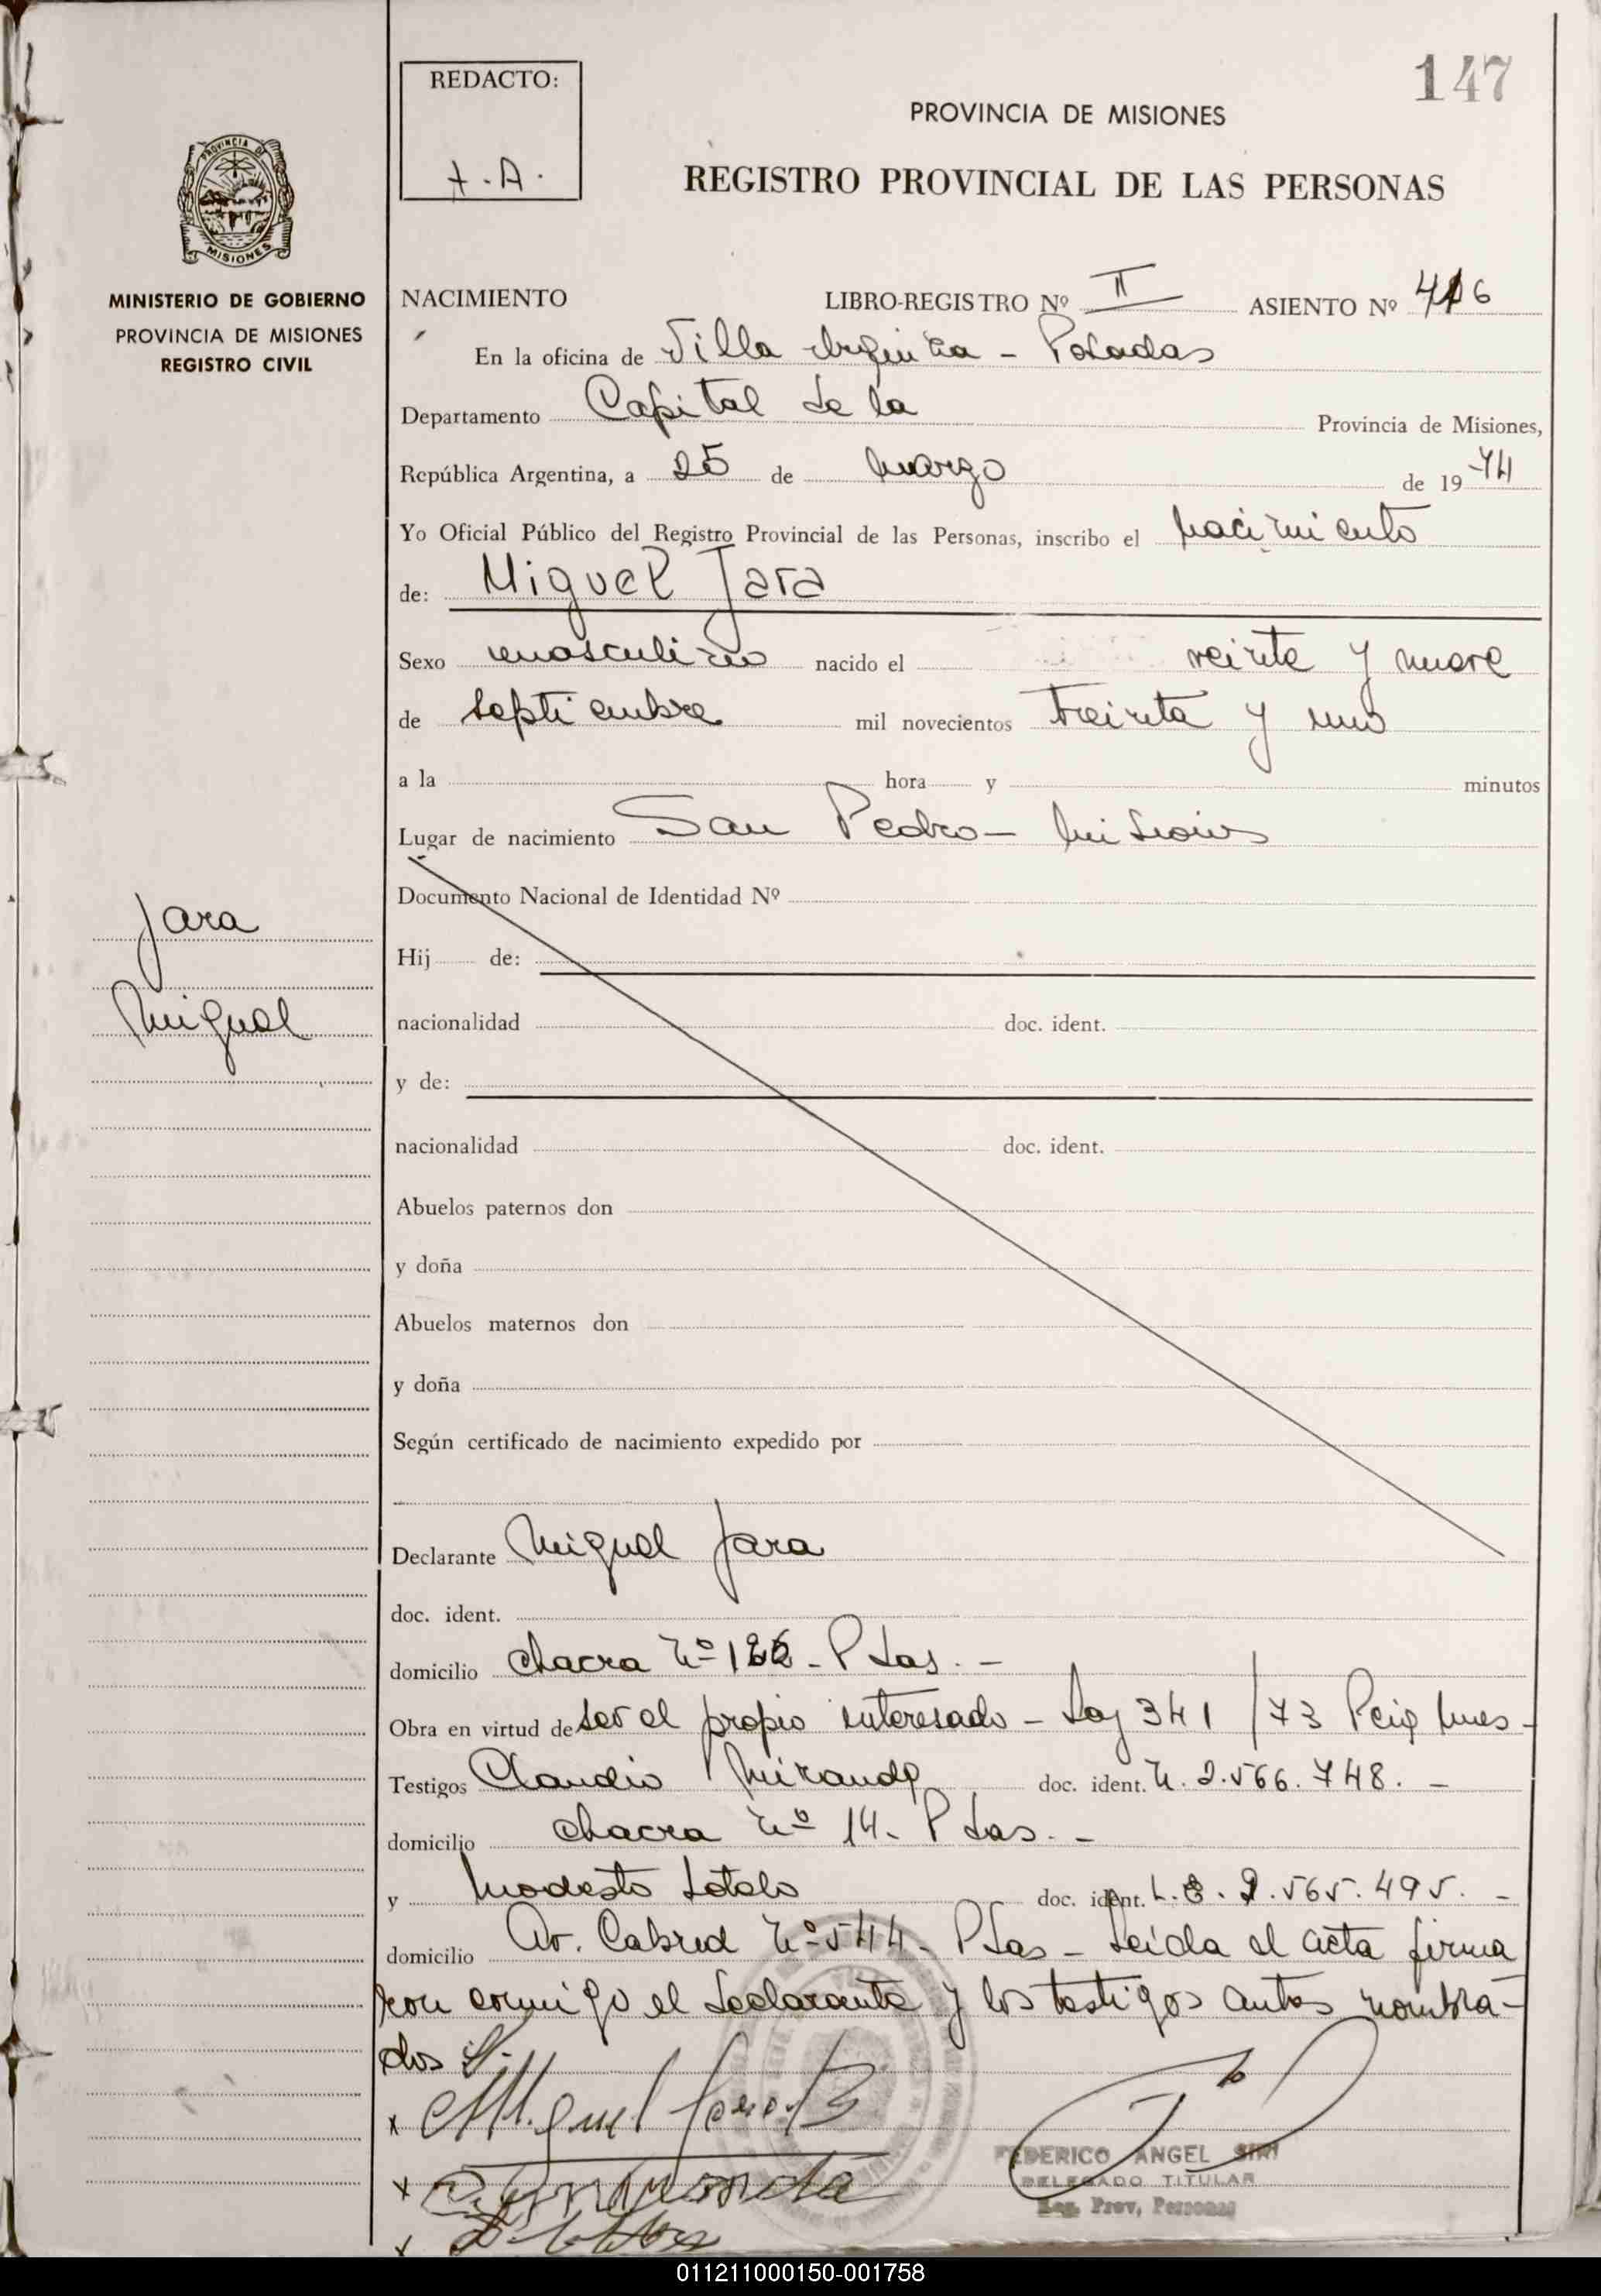 147
REDACTO:
PROVINCIA DE MISIONES
REGISTRO PROVINCIAL DE LAS PERSONAS
PROVINCIA DE
MISIONES
MINISTERIO DE GOBIERNO
PROVINCIA DE MISIONES
REGISTRO CIVIL
NACIMIENTO LIBRO-REGISTRO Nº II ASIENTO Nº 416
En la oficina de Villa Urquiza - Posadas
Departamento Capital de la Provincia de Misiones,
República Argentina, a 25 de marzo de 19 74
Yo Oficial Público del Registro Provincial de las Personas, inscribo el nacimiento
de: Miguel Jara
Sexo masculino nacido el veinte y nueve
de septiembre mil novecientos treinta y uno
a la hora y minutos
Lugar de nacimiento San Pedro - Misiones
Documento Nacional de Identidad Nº
Jara
Hij de:
Miguel
nacionalidad doc. ident.
y de:
nacionalidad doc. ident.
Abuelos paternos don
y doña
Abuelos maternos don
y doña
Según certificado de nacimiento expedido por
Declarante Miguel Jara
doc. ident.
domicilio chacra Nº - Pdas. -
Obra en virtud de ser el propio interesado - Ley 341/73
Testigos Claudio Miranda doc. ident. 2.566.748. -
domicilio chacra Nº 14. Pdas. -
y Modesto Sotelo doc. ident. L.E. 2.565.495. -
domicilio Av. Cabred Nº 544. Pdas - Leida el acta firma
con conmigo el declarante y los testigos antes nombra-
dos
x Miguel Jara
x
x
FEDERICO ANGEL
DELEGADO TITULAR
Reg. Prov. Personas
011211000150-001758